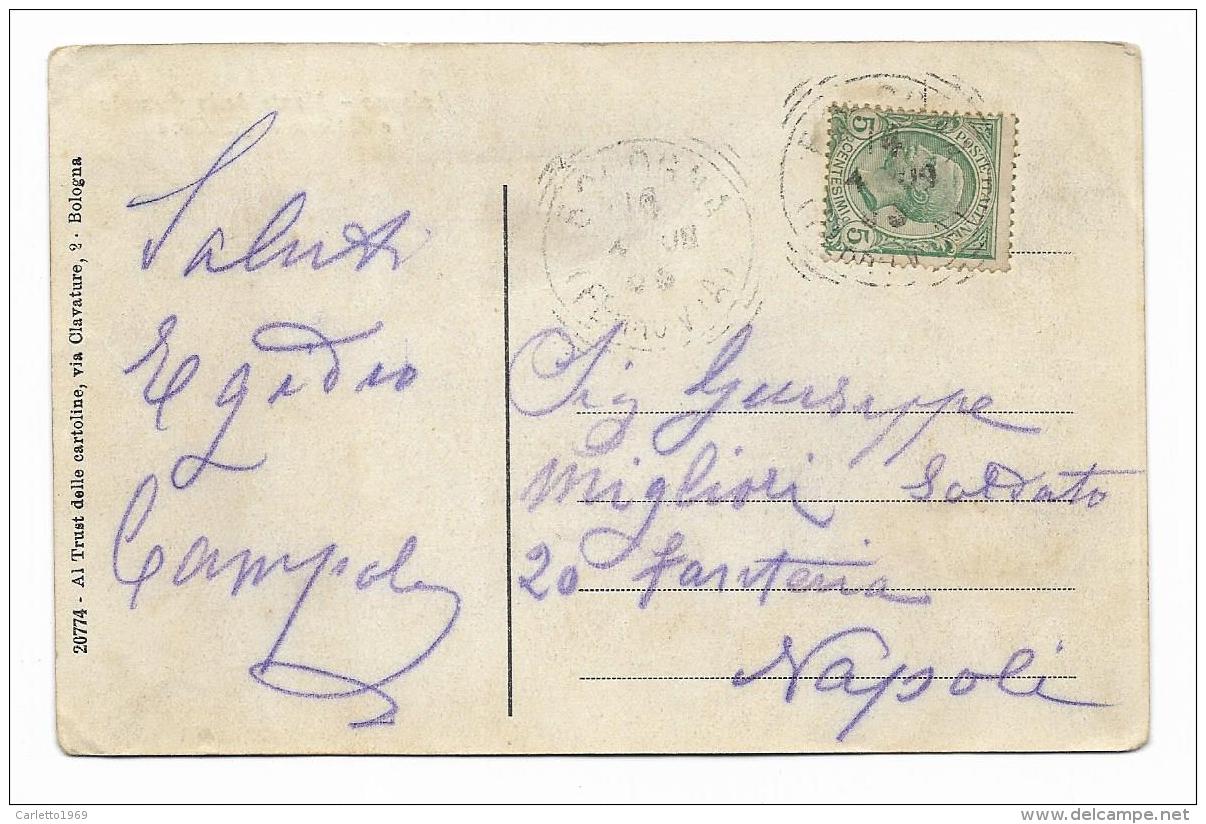 20774 - Al Trust delle cartoline, via Clavature, 2 - Bologna
Saluti
Egidio
Campoli
POSTE ITALIANE
5 CENTESIMI 5
BOLOGNA
(FERROVIA)
Sig Giuseppe
Migliori Soldato
20 Fanteria
Napoli
Carletto1969
www.delcampe.net